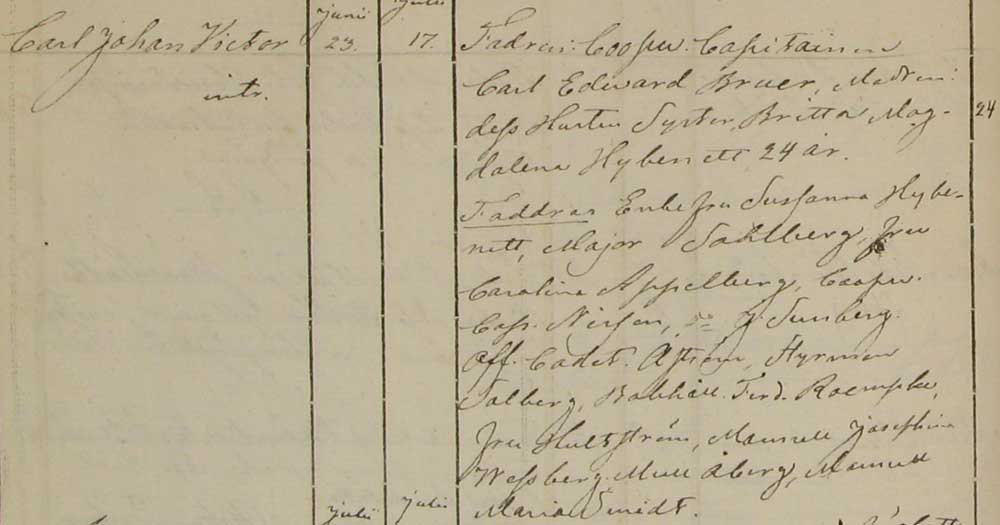 junii julii
Carl Johan Victor 23. 17. Fadren: Coopv. Capitainen
intr. Carl Edward Bruer, Modren:
dess Hustru Syster, Britta Mag- 24
dalena Hybenett 24 år.
Faddrar Enkefru Susanna Hybe-
nett, Major Sahlberg, fru
Carolina Appelberg, Coopv.
Cap. J. Sunberg.
Off. Cadet. Åström, Styrman
Talberg, Bokhåll. Ferd.
fru Hultström, Mamsell Josephina
Wessberg. Mell Åberg, Mamsell
Maria Smidt.
julii julii